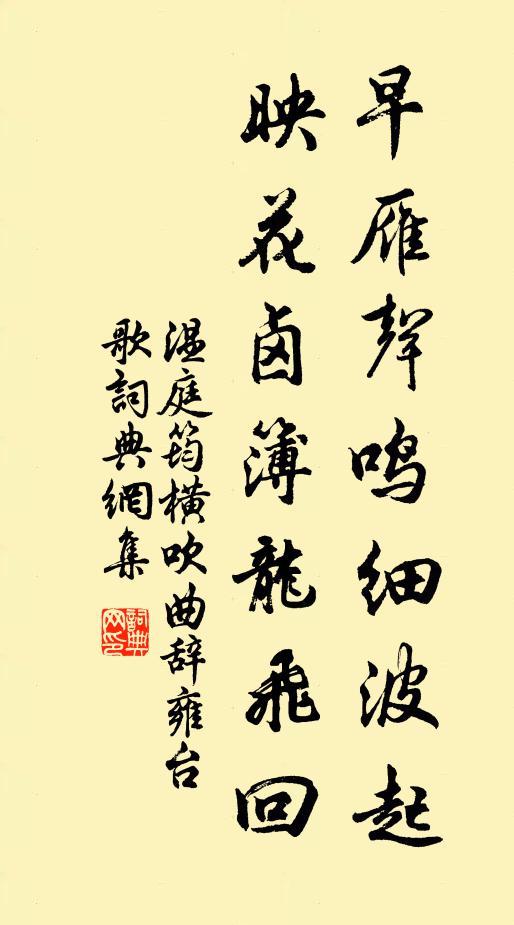 早雁聲鸣细波起
映花卤簿龍飛回
温庭筠横吹曲辞雍台
歌詞典網集
詞典
网印